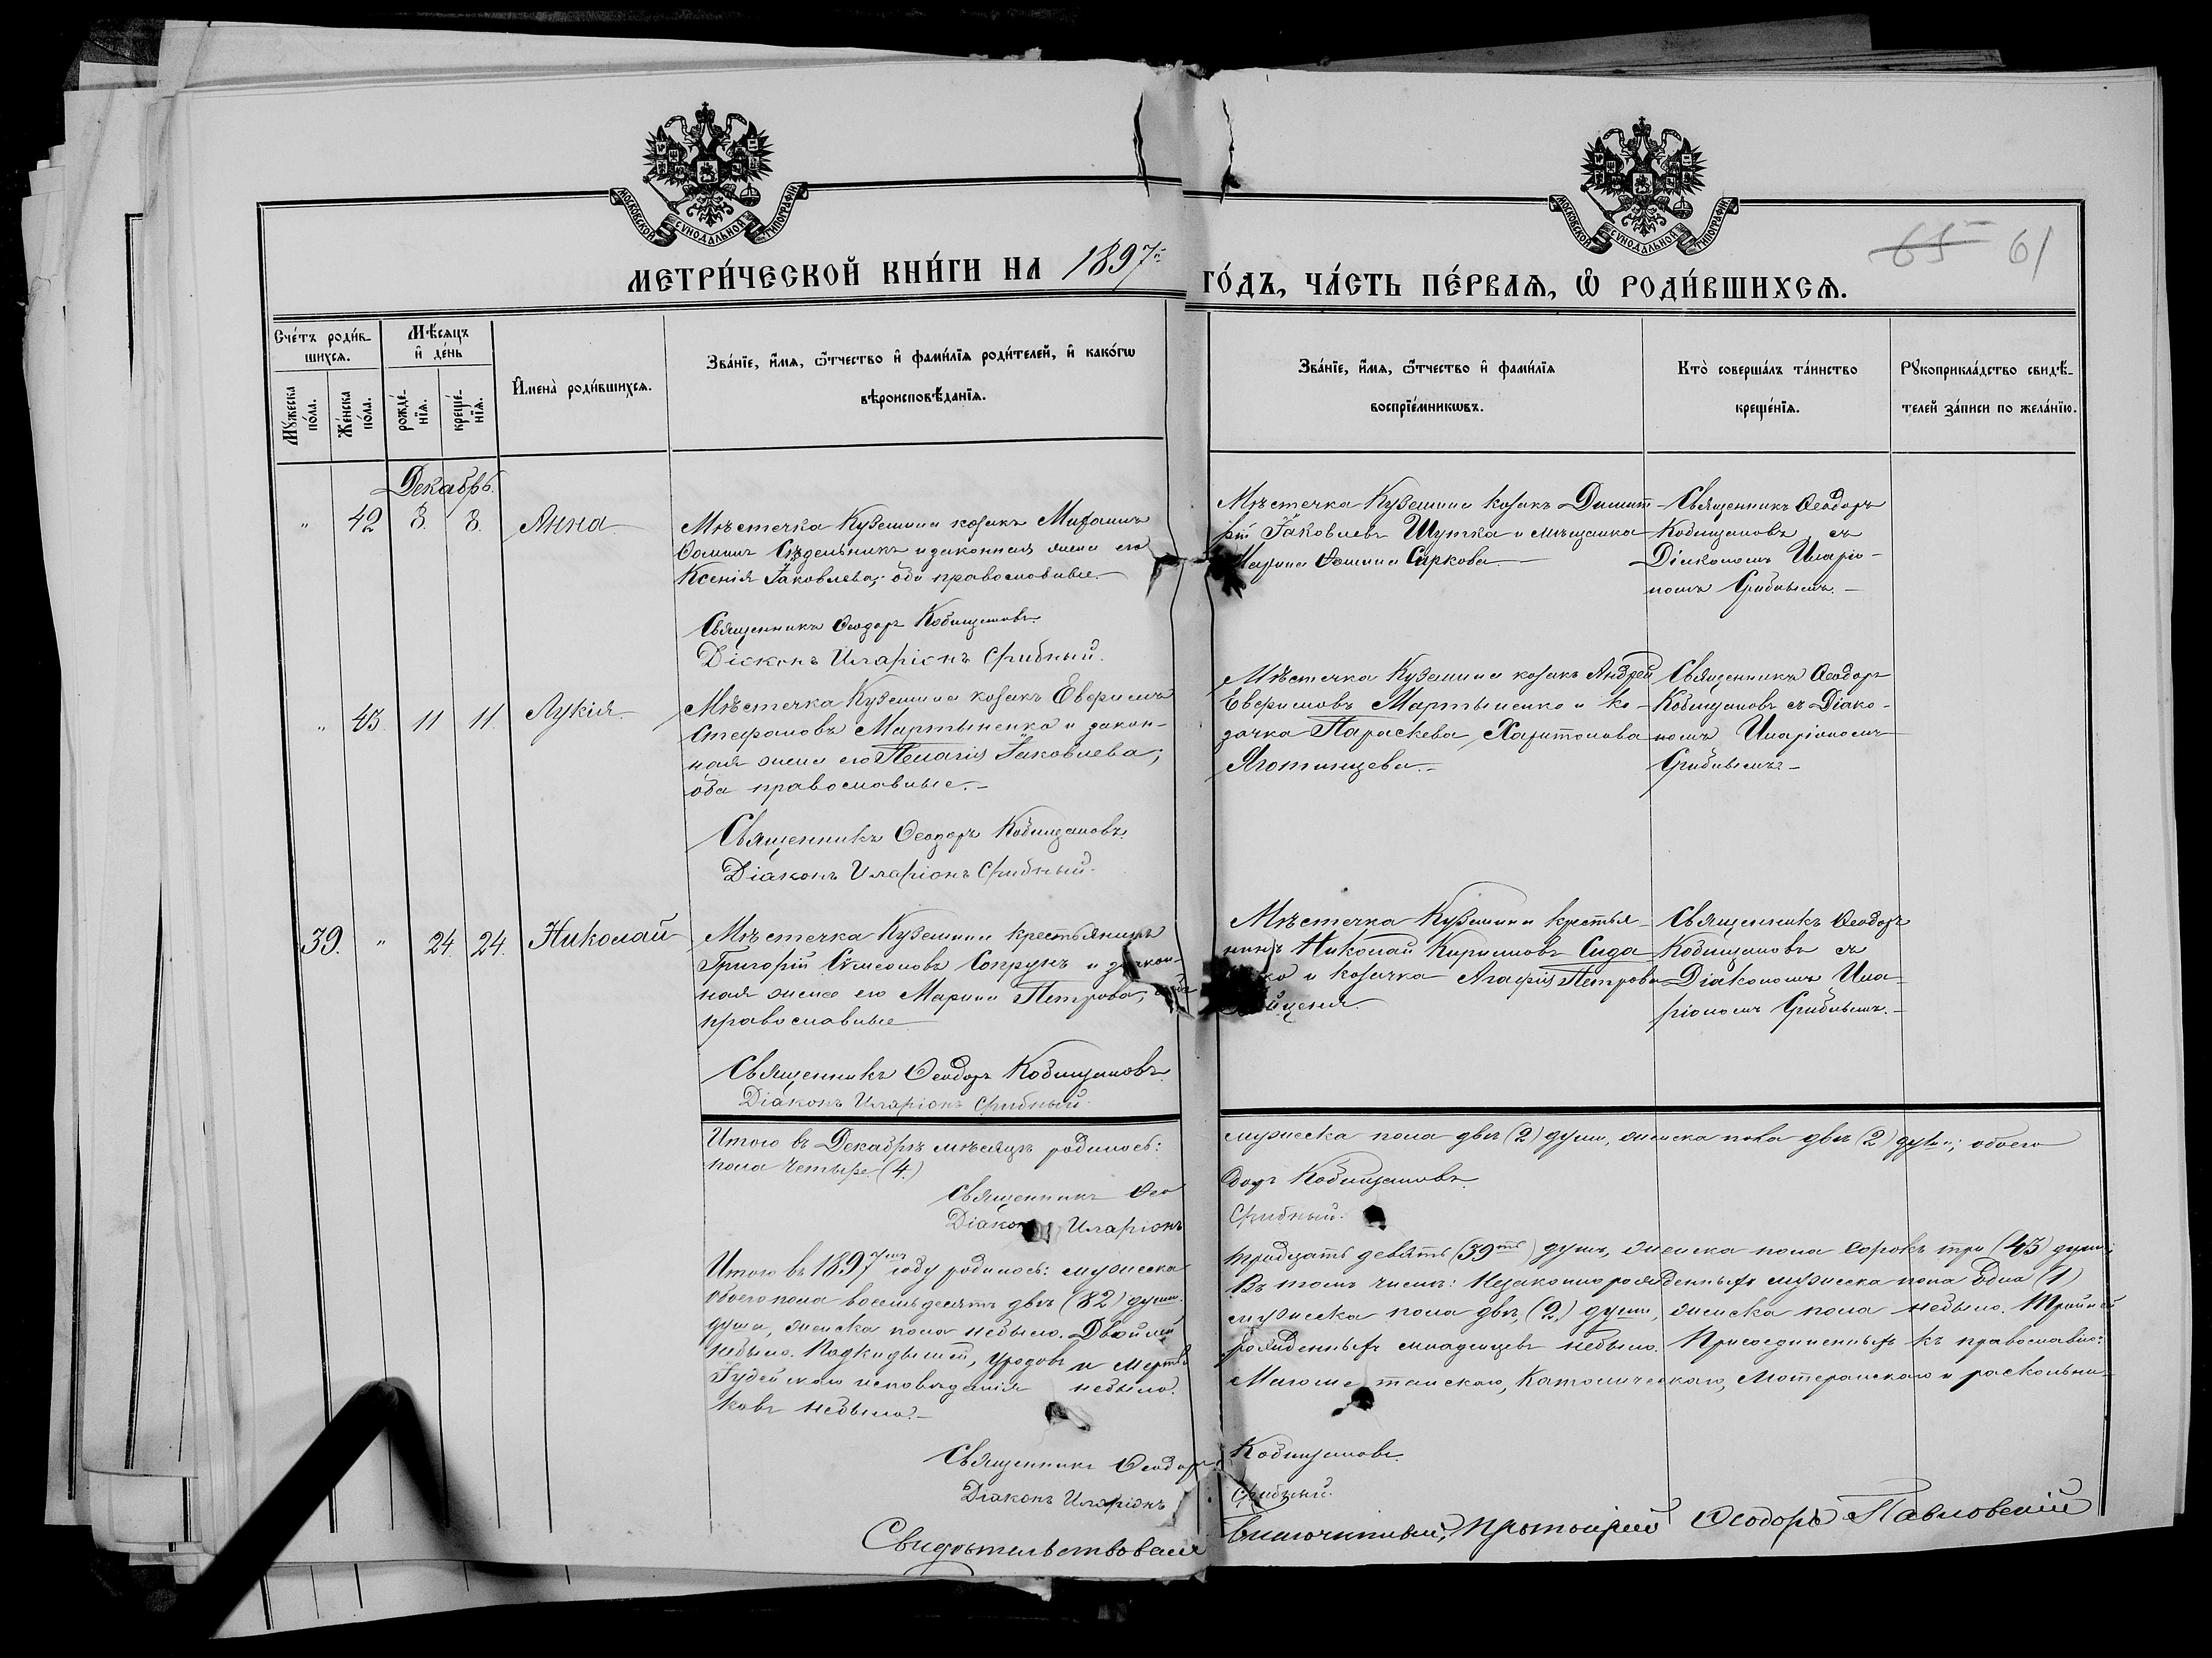 МОСКОВСКОЙ СѴНОДАЛЬНОЙ ТИПОГРАФІИ
МОСКОВСКОЙ СѴНОДАЛЬНОЙ ТИПОГРАФІИ
65 61
МЕТРИ́ЧЕСКОЙ КНИ́ГИ НА 1897й ГО́ДЪ, ЧА́СТЬ ПЕ́РВАѦ, Ѡ҆ РОДИ́ВШИХСѦ.
Сче́тъ роди́в-
шихсѧ.
Мꙋ́жеска
по́ла.
Же́нска
по́ла.
Мѣ́сѧцъ
и҆ де́нь
рожде́-
нїѧ.
креще́-
нїѧ.
И҆мена̀ роди́вшихсѧ.
Зва́нїе, и҆́мѧ, ѻ҆́тчество и҆ фами́лїѧ роди́телей, и҆ како́гѡ
вѣроисповѣ́данїѧ.
Зва́нїе, и҆́мѧ, ѻ҆́тчество и҆ фами́лїѧ
воспрїе́мникѡвъ.
Кто̀ соверша́лъ та́инство
креще́нїѧ.
Рꙋкоприкла́дство свидѣ́-
телей за́писи по жела́нїю.
Декабрь.
" 42 8. 8. Анна
Мѣстечка Куземина козакъ
Ѳоминъ Сѣдельникъ и законная жена его
Ксенія Іаковлева; оба православные.
Священникъ Ѳеодоръ Кобищановъ.
Діаконъ Иларіонъ Срибный.
Мѣстечка Куземина козакъ Димит-
рій Іаковлевъ Шутка и мѣщанка
Марина Ѳомина Саркова.
Священникъ Ѳеодоръ
Кобищановъ съ
Діакономъ Иларіо-
номъ Срибнымъ.
" 43. 11 11. Лукія.
Мѣстечка Куземина козакъ Евфимъ
Стефановъ Мартыненко и закон-
ная жена его Пелагія Іаковлева;
оба православные.
Священникъ Ѳеодоръ Кобищановъ.
Діаконъ Иларіонъ Срибный.
Мѣстечка Куземина козакъ Андрей
Евфимовъ Мартыненко и ко-
зачка Параскева Харитонова
Яготинцева.
Священникъ Ѳеодоръ
Кобищановъ съ Діако-
номъ Иларіономъ
Срибнымъ.
39. " 24. 24. Николай
Мѣстечка Куземина крестьянинъ
Григорій Сѵмеоновъ Сопрунъ и закон-
ная жена его Марина Петрова, оба
православные
Священникъ Ѳеодоръ Кобищановъ.
Діаконъ Иларіонъ Срибный.
Мѣстечка Куземина крестья-
нинъ Николай Кириловъ Сида
и козачка Агафія Петрова
Священникъ Ѳеодоръ
Кобищановъ съ
Діакономъ Ила-
ріономъ Срибнымъ.
Итого въ Декабрѣ мѣсяцѣ родилось: мужеска пола двѣ (2) души, женска пола двѣ (2) души; обоего
пола четыре (4.)
Священникъ Ѳеодоръ Кобищановъ.
Діаконъ Иларіонъ Срибный.
Итого въ 1897мъ году родилось: мужеска тридцать девять (39ть) душъ, женска пола сорокъ три (43) души;
обоего пола восемьдесятъ двѣ (82) души. Въ томъ числѣ: Незаконно рожденныхъ мужеска пола одна (1)
душа, женска пола небыло. Двойней мужеска пола двѣ (2) души, женска пола небыло. Тройней
небыло. Подкидышей, уродовъ и мертво рожденныхъ младенцевъ небыло. Присоединенныхъ къ православію:
Іудейскаго исповѣданія небыло. Магометанскаго, Католическаго, Лютеранскаго и раскольни-
ковъ небыло.
Священникъ Ѳеодоръ Кобищановъ.
Діаконъ Иларіонъ Срибный.
Свидѣтельствовалъ Благочинный, Протоіерей Ѳеодоръ Павловскій